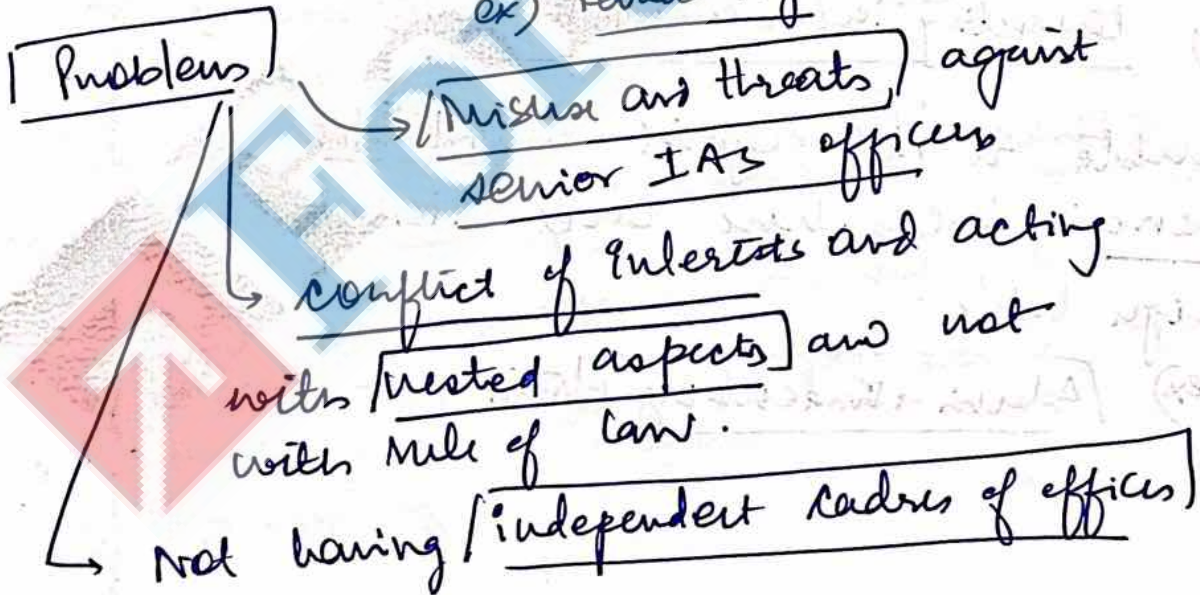 ex)
Problems
→ Misuse and threats against
senior IAS officers
→ conflict of interests and acting
with vested aspects and not
with rule of law.
→ Not having independent cadres of offices